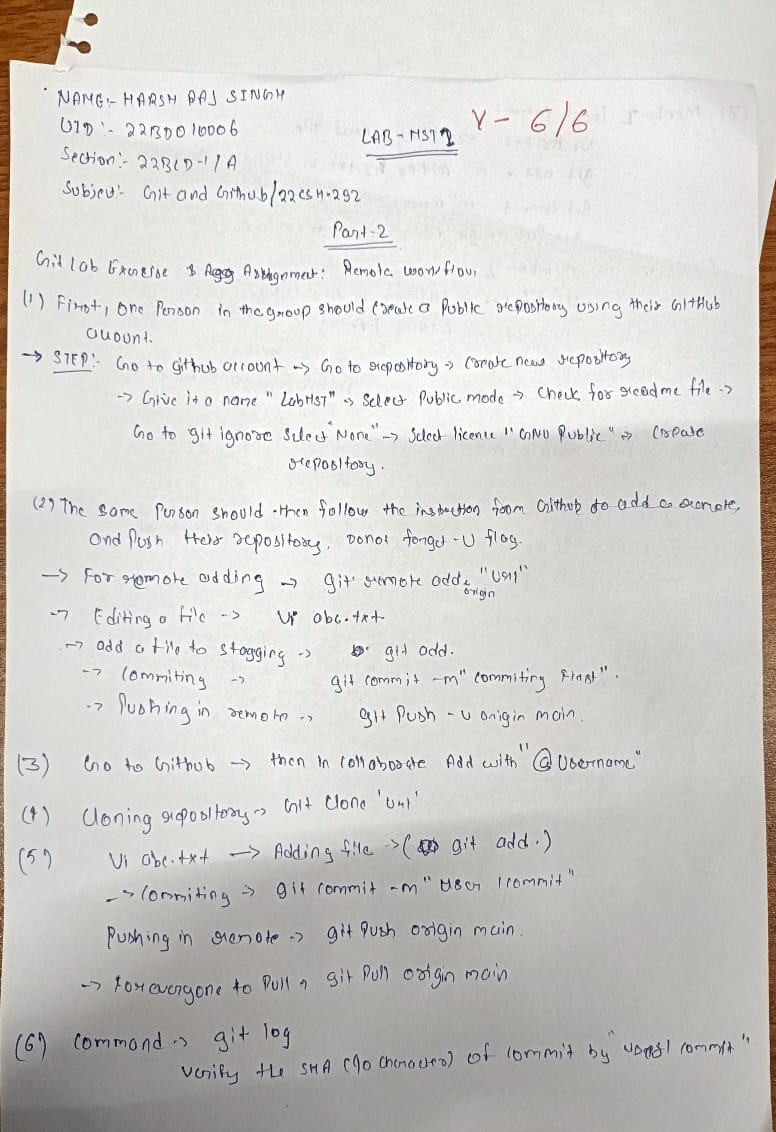 NAME:- HARSH RAJ SINGH
UID:- 22BDO10006
LAB-MST 2 Y- 6/6
Section:- 22BCD-1/A
Subject:- Git and Github/22CSH-292
Part-2
Git Lab Exercise & Assignment: Remote workflow
(1) First, One Person in the group should Create a Public repository using their GitHub
account.
→ STEP:- Go to github account → Go to repository → Create new repository
→ Give it a name "LabMST" → Select Public mode → Check for readme file →
Go to git ignore Select "None" → Select licence "GNU Public" → Create
repository.
(2) The same Person should then follow the instruction from Github to add a remote,
and Push their repository. Donot forget -u flag.
→ For remote adding → git remote add origin "url"
→ Editing a file → vi abc.txt
→ add a file to stagging → git add.
→ Commiting → git commit -m "commiting first".
→ Pushing in remote → git Push -u origin main.
(3) Go to Github → then in collaborate Add with "@Username"
(4) Cloning repository → Git Clone 'url'
(5) Vi abc.txt → Adding file → ( git add.)
→ Commiting → git commit -m "User 1 commit"
Pushing in remote → git Push origin main.
→ For everyone to Pull → git Pull origin main
(6) Command → git log
verify the SHA (40 character) of commit by "user1 commit"